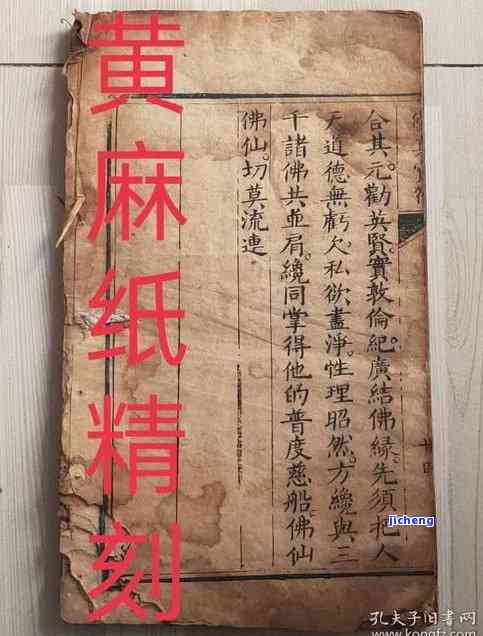 合其元。勸英賢。實敦倫紀。廣結佛緣。先須把人
天道德無虧欠。私欲盡淨。性理昭然。方纔與三
千諸佛共並肩。纔同掌得他的普度慈船。佛仙
佛仙。切莫流連。
廿四
黄麻纸精刻
jicheng
孔夫子旧书网
www.kongfz.com